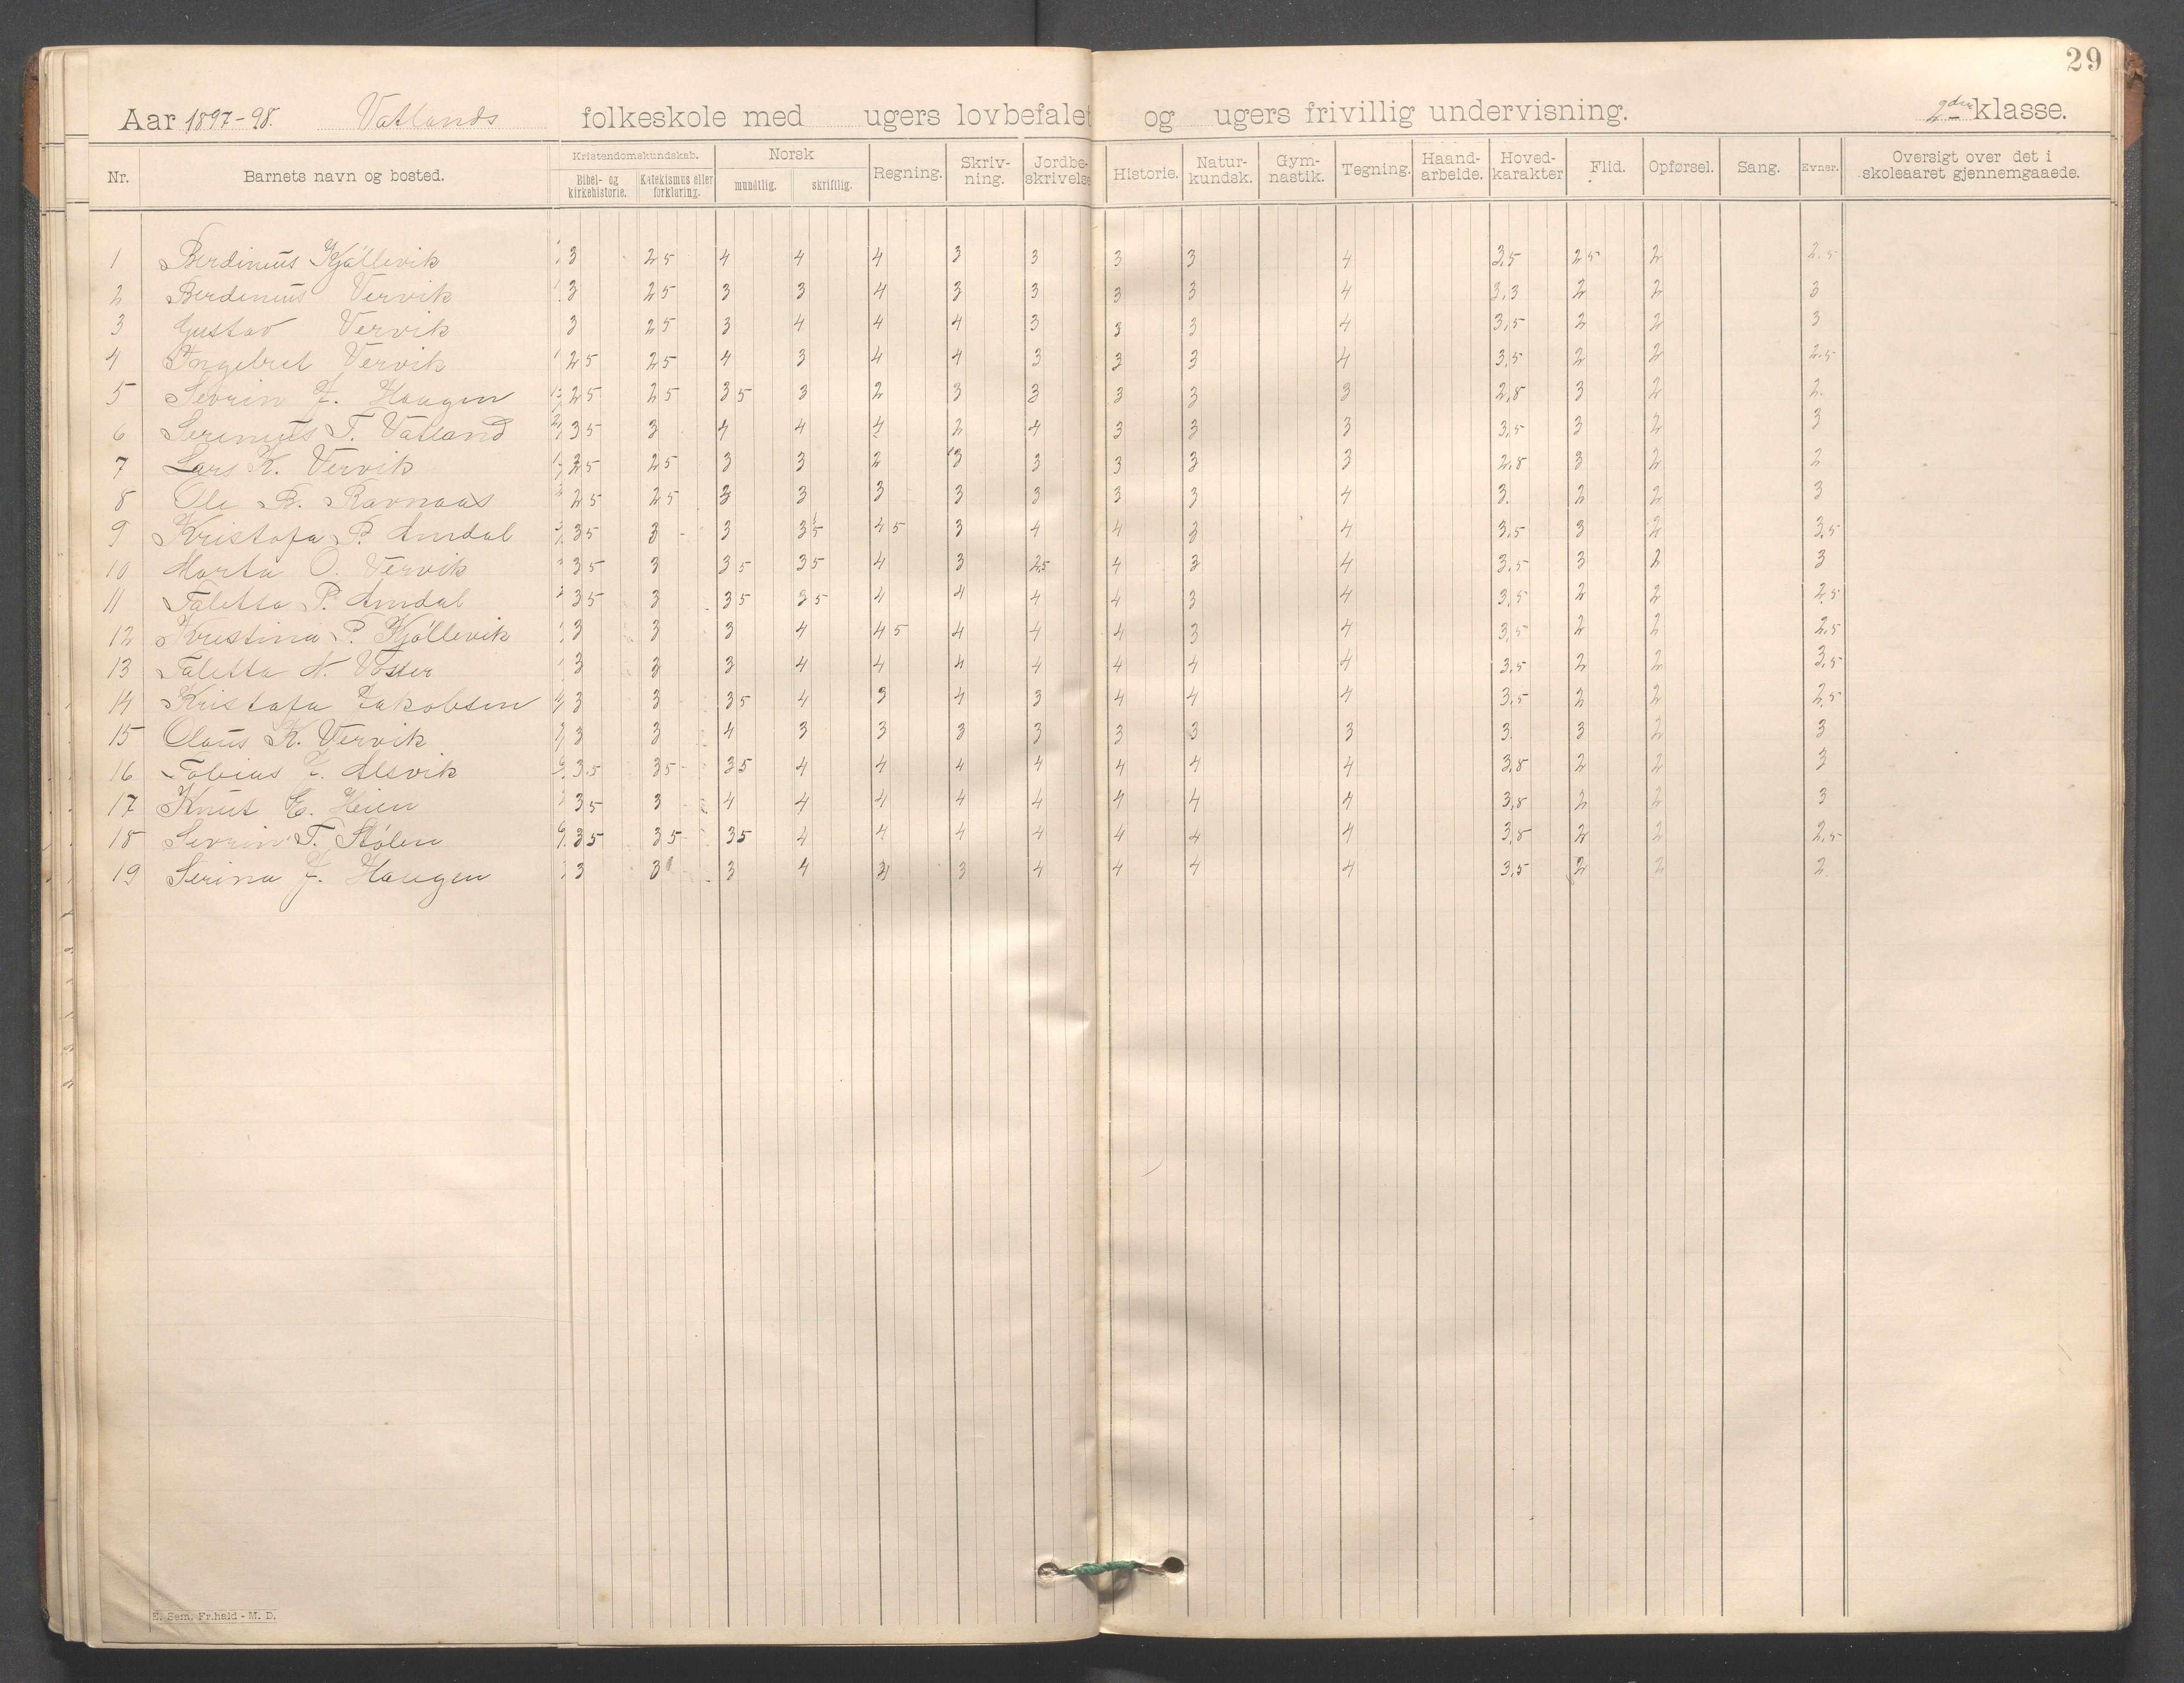 29
Aar 1897-98. Vatlands folkeskole med ugers lovbefalet og ugers frivillig undervisning. 2den klasse.
Nr. Barnets navn og bosted. Kristendomskundskab. Bibel- og kirkehistorie. Katekismus eller forklaring. Norsk mundtlig. skriftlig. Regning. Skriv-ning. Jordbe-skrivelse Historie. Natur-kundsk. Gym-nastik. Tegning. Haand-arbeide. Hoved-karakter Flid. Opførsel. Sang. Evner. Oversigt over det i skoleaaret gjennemgaaede.
1 Berdinius Kjöllevik 3 25 4 4 4 3 3 3 3 4 3,5 25 2 2.5
2 Berdinius Vervik 3 25 3 3 4 3 3 3 3 4 3,3 2 2 3
3 Gustav Vervik 3 25 3 4 4 4 3 3 3 4 3,5 2 2 3
4 Ingebret Vervik 25 25 4 3 4 4 3 3 3 4 3,5 2 2 2.5
5 Sevrin J. Haugen 25 25 35 3 2 3 3 3 3 3 2,8 3 2 2.
6 Serinius T. Vatland 35 3 4 4 4 2 4 3 3 3 3,5 3 2 3
7 Lars K. Vervik 25 25 3 3 2 3 3 3 3 3 2,8 3 2 2
8 Ole B. Ravnaas 25 25 3 3 3 3 3 3 3 4 3. 2 2 3
9 Kristofa P. Amdal 35 3 3 35 45 3 4 4 3 4 3,5 3 2 3,5
10 Marta O. Vervik 35 3 35 35 4 3 25 4 3 4 3,5 3 2 3
11 Taletta P. Amdal 35 3 35 35 4 4 4 4 3 4 3,5 2 2 2,5
12 Kristina P. Kjöllevik 3 3 3 4 45 4 4 4 3 4 3,5 2 2 2,5
13 Taletta N. Vasser 3 3 3 4 4 4 4 4 4 4 3,5 2 2 3,5
14 Kristofa Jakobsen 3 3 35 4 3 4 3 4 4 4 3,5 2 2 2,5
15 Olaus K. Vervik 3 3 4 3 3 3 3 3 3 3 3 3 2 3
16 Tobias J. Alsvik 3.5 35 35 4 4 4 4 4 4 4 3,8 2 2 3
17 Knut E. Heien 35 3 4 4 4 4 4 4 4 4 3,8 2 2 3
18 Sevrin T. Stölen 35 35 35 4 4 4 4 4 4 4 3,8 2 2 2,5
19 Serina J. Haugen 3 3 3 4 3 4 4 4 4 3,5 2 2 2
E. Sem. Fr.hald - M. D.